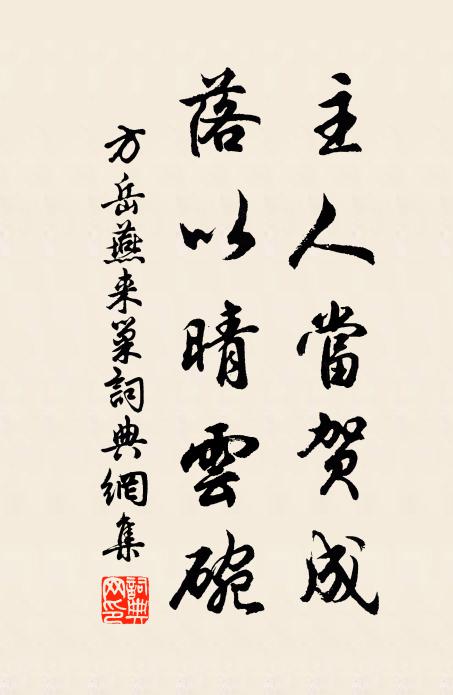 主人當賀成
落以晴雲碗
方岳燕来巢詞典網集
詞典网印